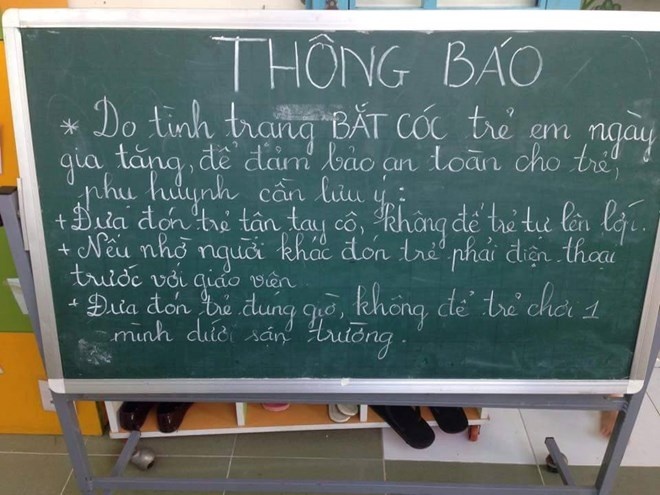 THÔNG BÁO
* Do tình trạng BẮT CÓC trẻ em ngày
gia tăng, để đảm bảo an toàn cho trẻ,
phụ huynh cần lưu ý:
+ Đưa đón trẻ tận tay cô, không để trẻ tự lên lớp.
+ Nếu nhờ người khác đón trẻ phải điện thoại
trước với giáo viên
+ Đưa đón trẻ đúng giờ, không để trẻ chơi 1
mình dưới sân trường.